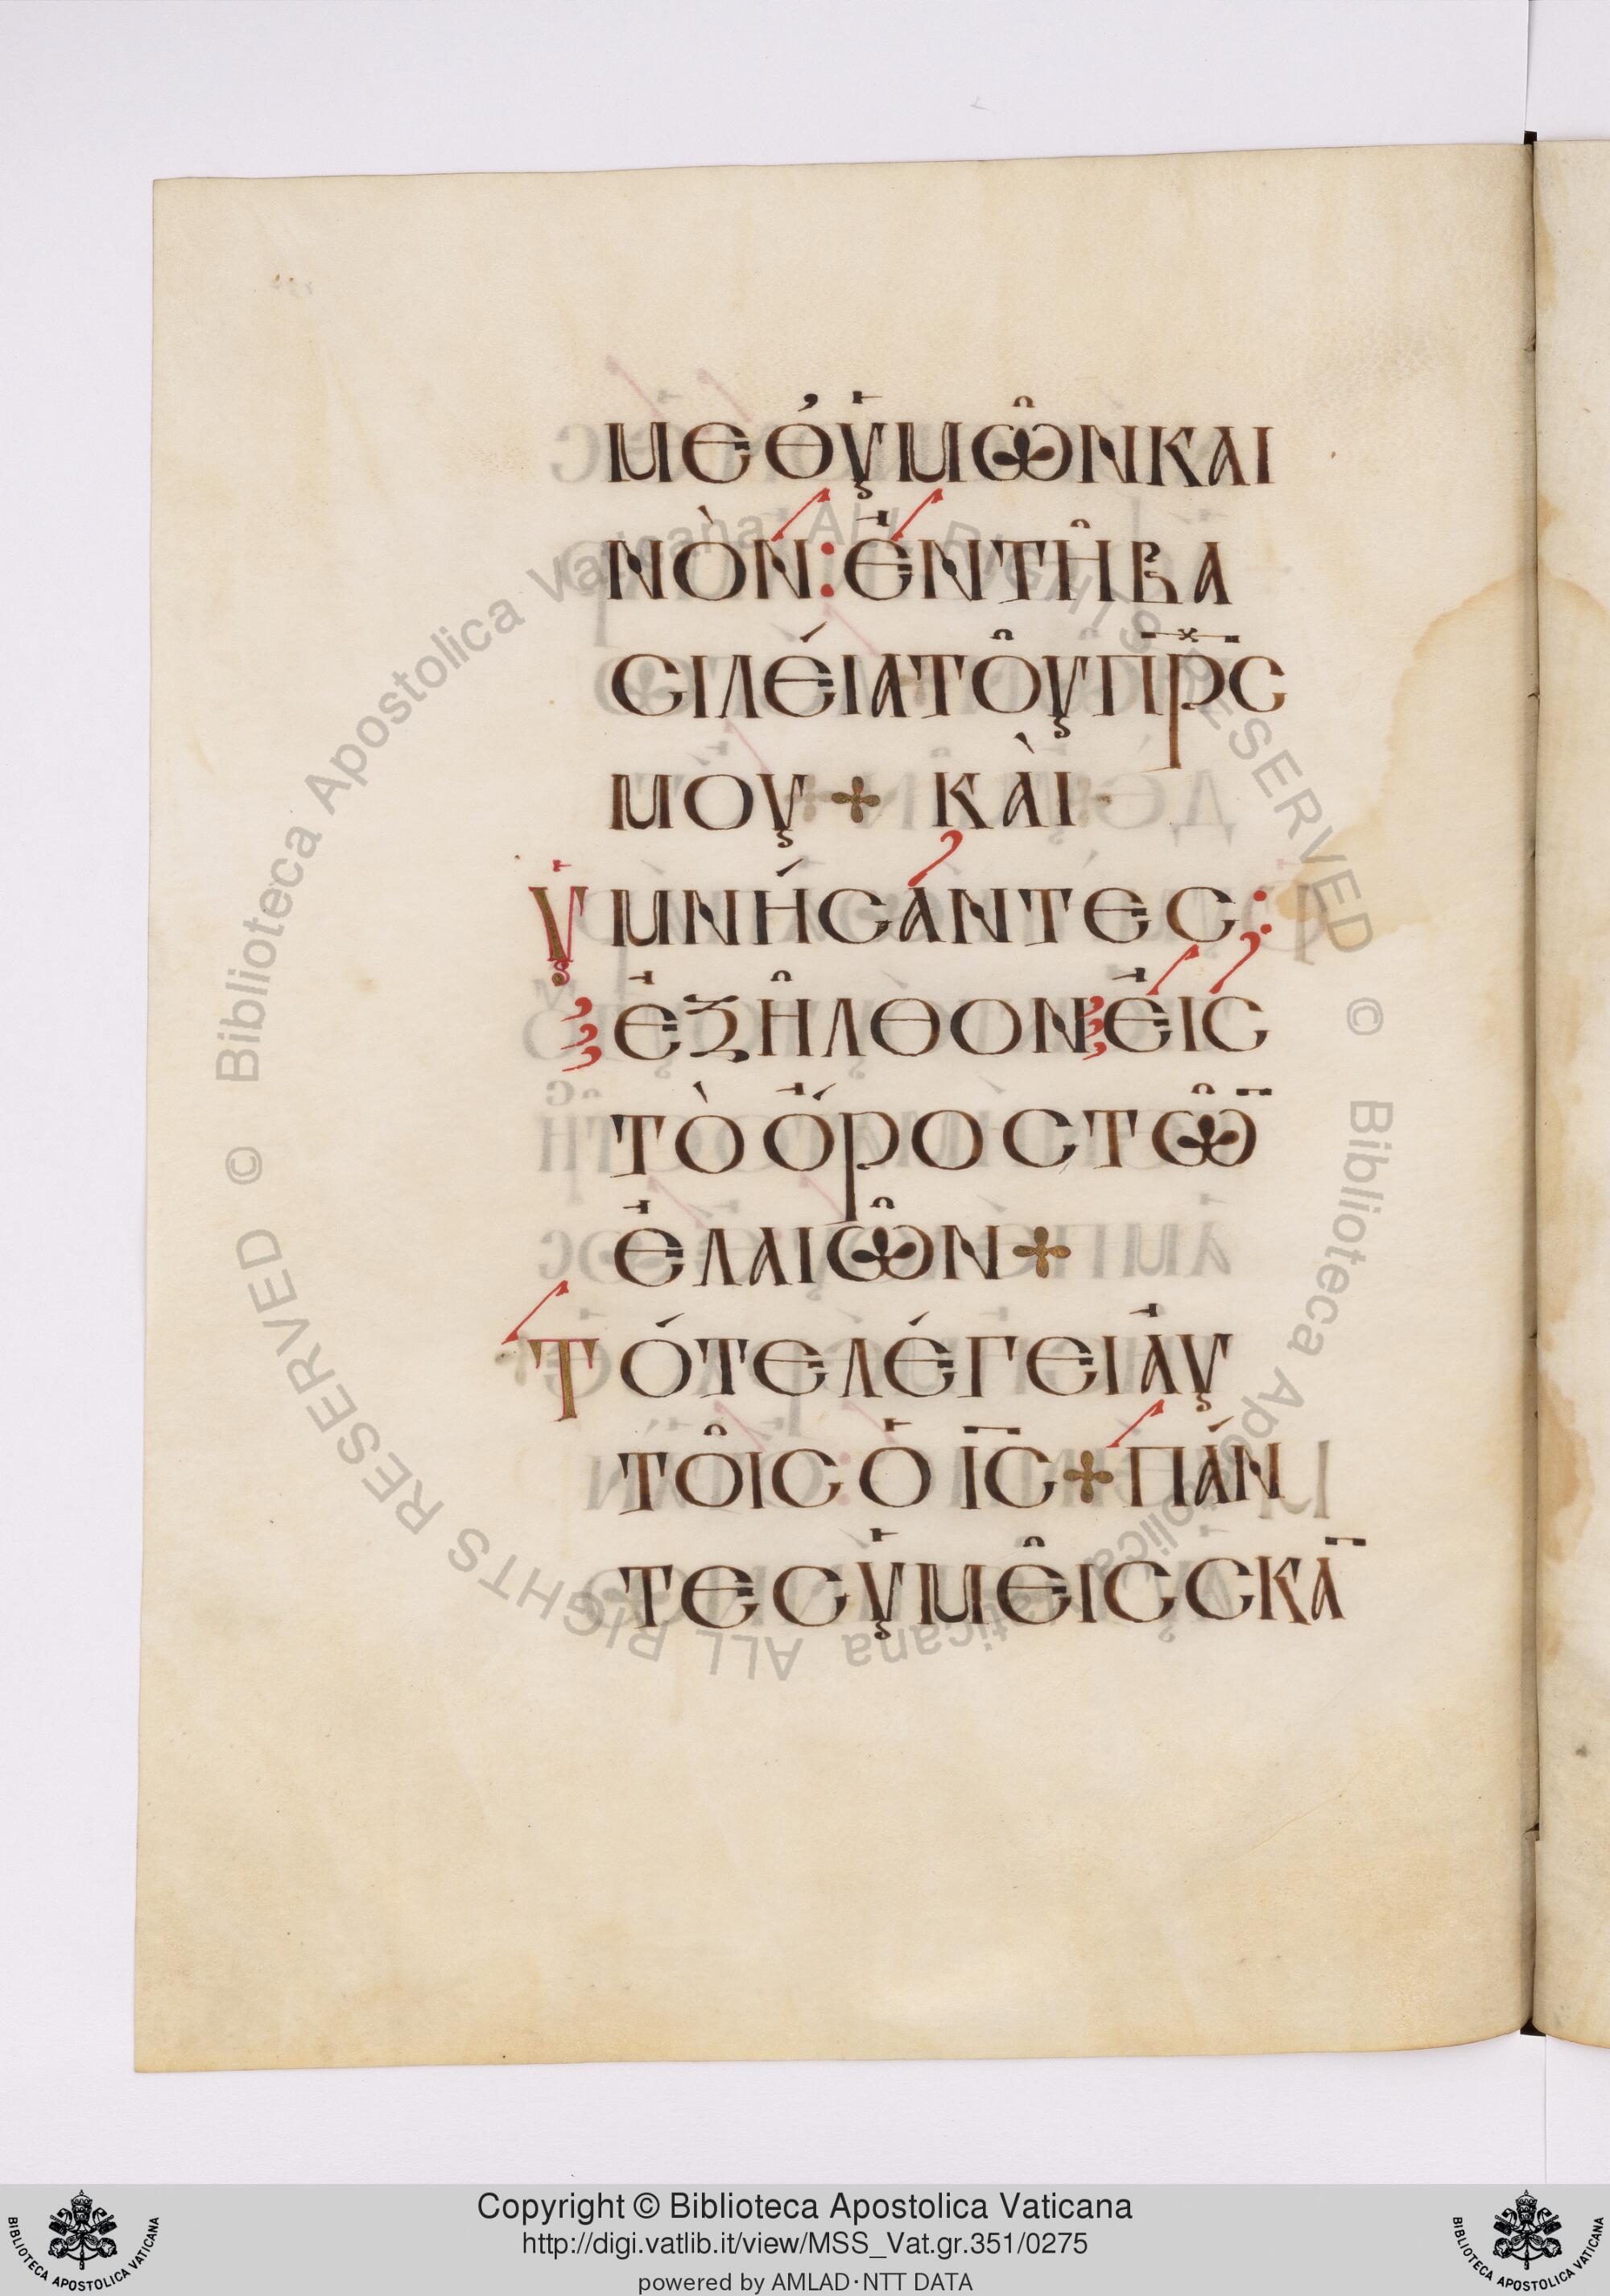 ΜΕΘ᾽ὙΜΩ͂ΝΚΑΙ
ΝῸΝ: ἘΝΤΗ͂ΒΑ
ΣΙΛΈΙΑΤΟΥ͂Π̅Ρ̅Σ
ΜΟΥ + ΚΑῚ
ὙΜΝΉΣΑΝΤΕΣ:
ἘΞΗ͂ΛΘΟΝἘΙΣ
ΤῸὌΡΟΣΤΩ͂̅
ἘΛΑΙΩ͂Ν +
ΤΌΤΕΛΈΓΕΙἈΥ
ΤΟΙ͂ΣὉ Ι̅Σ̅ + ΠΆΝ
ΤΕΣὙΜΕΙ͂ΣΣΚΑ̅
© Biblioteca Apostolica Vaticana ALL RIGHTS RESERVED © Biblioteca Apostolica Vaticana ALL RIGHTS RESERVED
Copyright © Biblioteca Apostolica Vaticana
http://digi.vatlib.it/view/MSS_Vat.gr.351/0275
powered by AMLAD·NTT DATA
BIBLIOTECA APOSTOLICA VATICANA
BIBLIOTECA APOSTOLICA VATICANA